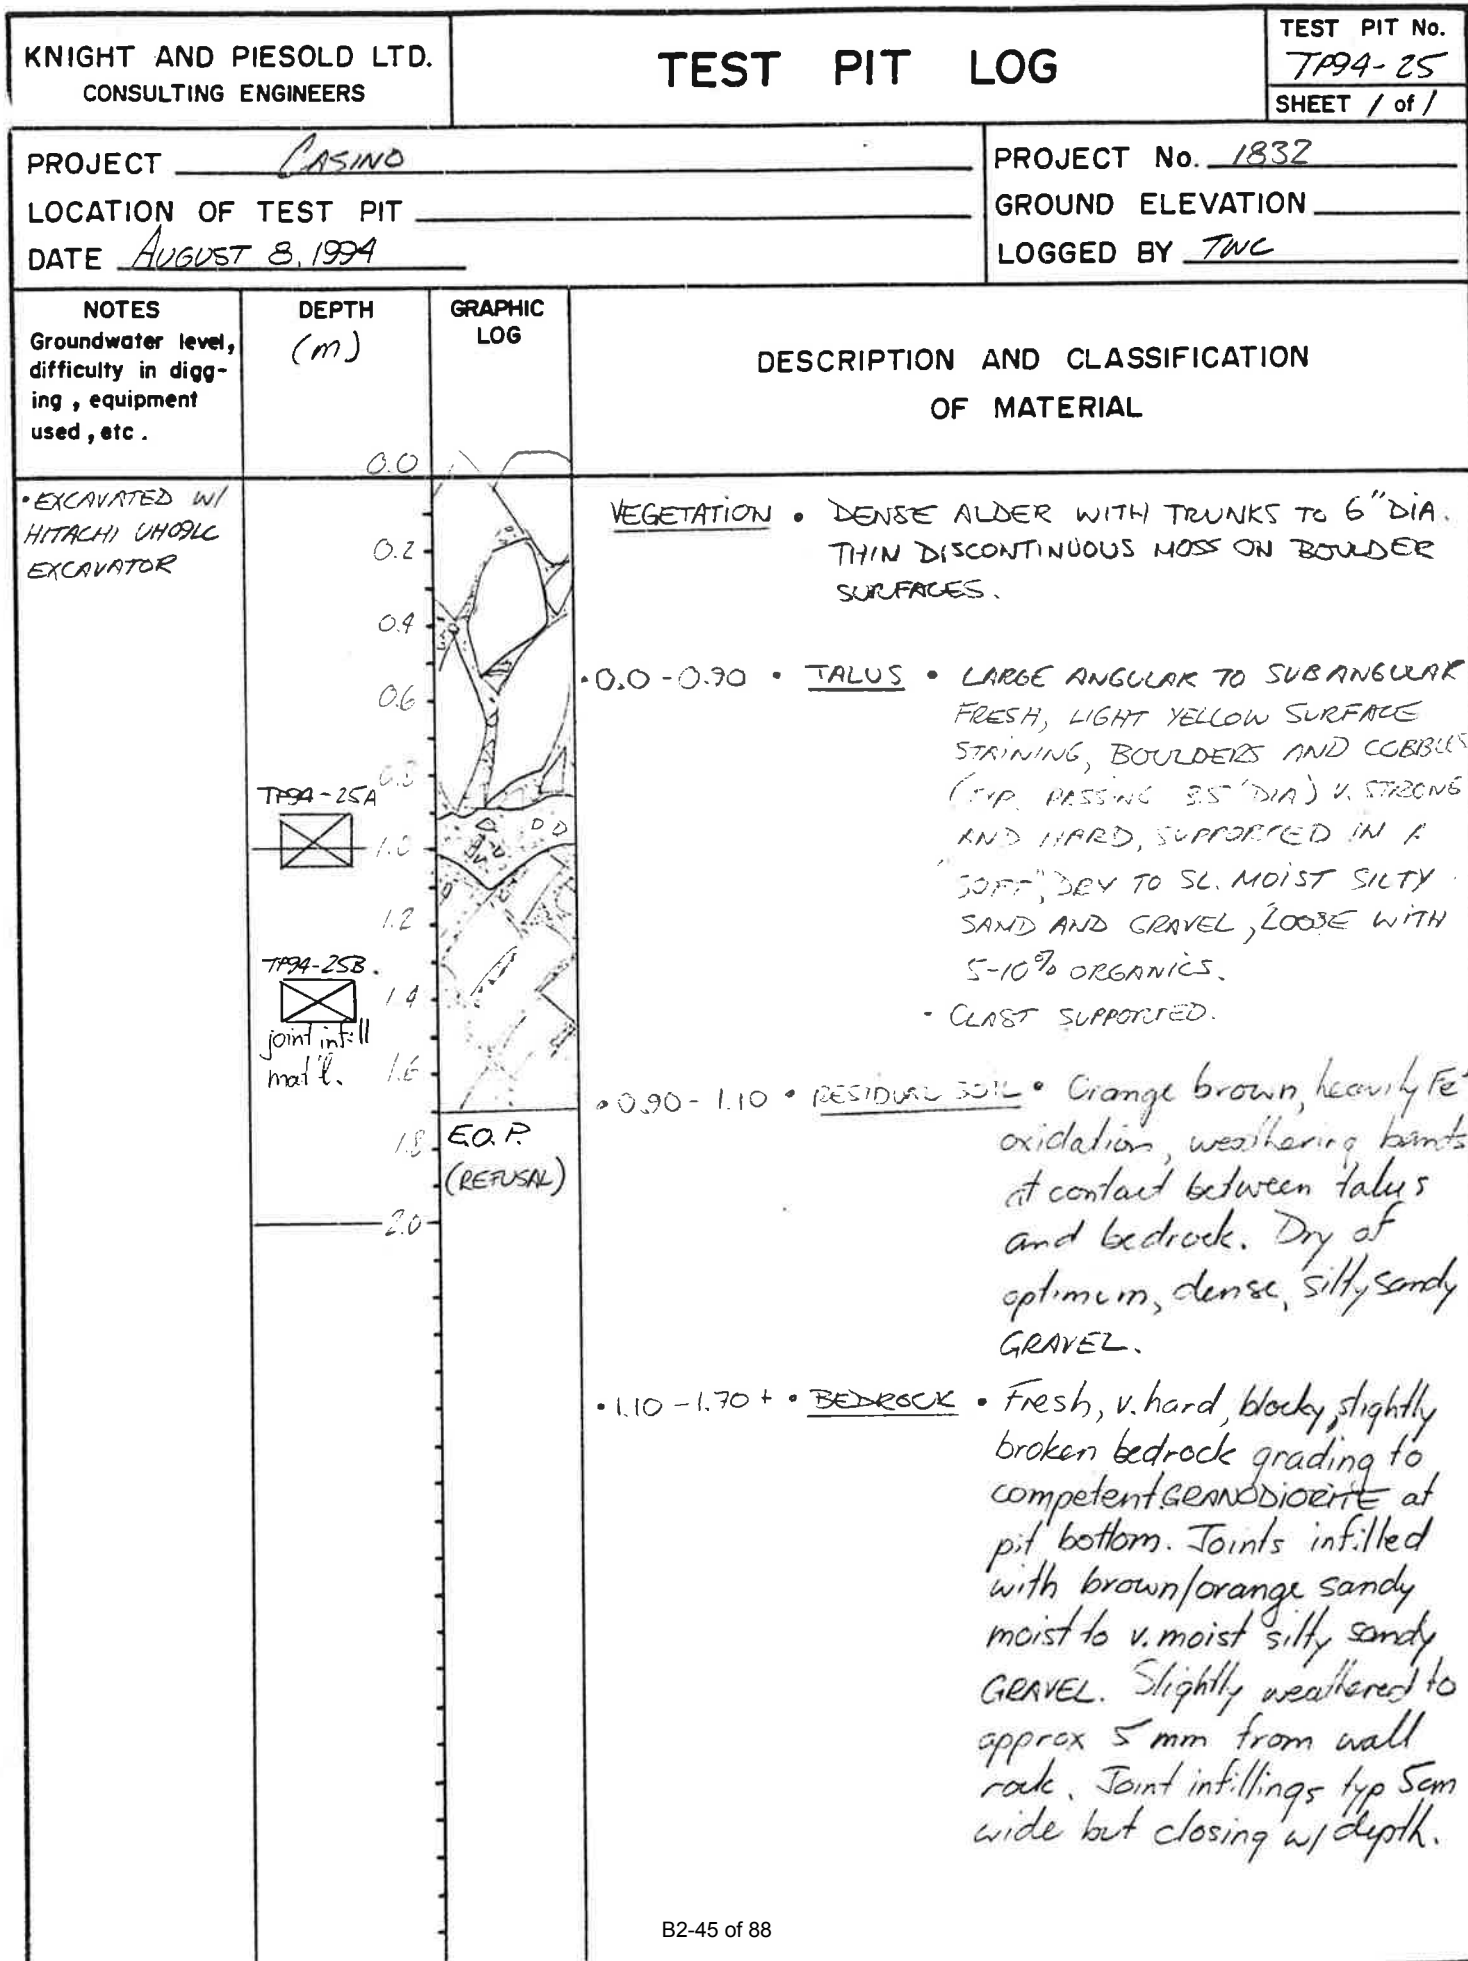 KNIGHT AND PIESOLD LTD.
CONSULTING ENGINEERS
TEST PIT LOG
TEST PIT No.
TP94-25
SHEET 1 of 1
PROJECT CASINO
LOCATION OF TEST PIT
DATE AUGUST 8, 1994
PROJECT No. 1832
GROUND ELEVATION
LOGGED BY TWC
NOTES
Groundwater level,
difficulty in digg-
ing, equipment
used, etc.
DEPTH
(m)
GRAPHIC
LOG
DESCRIPTION AND CLASSIFICATION
OF MATERIAL
• EXCAVATED W/
HITACHI
EXCAVATOR
0.0
0.2
0.4
0.6
0.8
TP94-25A
1.0
1.2
TP94-25B.
1.4
joint infill
mat'l.
1.6
1.8
2.0
E.O.P.
(REFUSAL)
VEGETATION • DENSE ALDER WITH TRUNKS TO 6" DIA.
THIN DISCONTINUOUS MOSS ON BOULDER
SURFACES.
• 0.0 - 0.90 • TALUS • LARGE ANGULAR TO SUBANGULAR
FRESH, LIGHT YELLOW SURFACE
STAINING, BOULDERS AND COBBLES
(TYP. PASSING DIA) V. STRONG
AND HARD, SUPPORTED IN A
"SOFT", DRY TO SL. MOIST SILTY
SAND AND GRAVEL, LOOSE WITH
5-10% ORGANICS.
• CLAST SUPPORTED.
• 0.90 - 1.10 • RESIDUAL SOIL • Orange brown, heavily Fe
oxidation, weathering
at contact between talus
and bedrock. Dry of
optimum, dense, silty sandy
GRAVEL.
• 1.10 - 1.70 + • BEDROCK • Fresh, v. hard, blocky, slightly
broken bedrock grading to
competent GRANODIORITE at
pit bottom. Joints infilled
with brown/orange sandy
moist to v. moist silty sandy
GRAVEL. Slightly weathered to
approx 5 mm from wall
rock. Joint infillings typ 5cm
wide but closing w/ depth.
B2-45 of 88